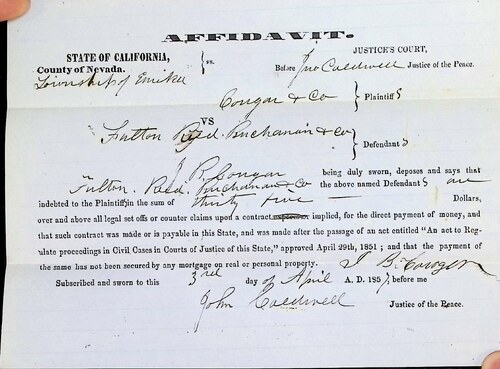 AFFIDAVIT.
STATE OF CALIFORNIA, } ss.
JUSTICE'S COURT,
County of Nevada.
Before Jno Caldwell Justice of the Peace.
Township of
& Co } Plaintiff s
VS
Fulton Reed Buchanan & Co } Defendant s
being duly sworn, deposes and says that
Fulton. Reed. Buchanan & Co the above named Defendant s are
indebted to the Plaintiff in the sum of thirty five Dollars,
over and above all legal set offs or counter claims upon a contract, express or implied, for the direct payment of money, and
that such contract was made or is payable in this State, and was made after the passage of an act entitled "An act to Reg-
ulate proceedings in Civil Cases in Courts of Justice of this State," approved April 29th, 1851; and that the payment of
the same has not been secured by any mortgage on real or personal property.
Subscribed and sworn to this 3rd day of April A. D. 185 , before me
John Caldwell Justice of the Peace.